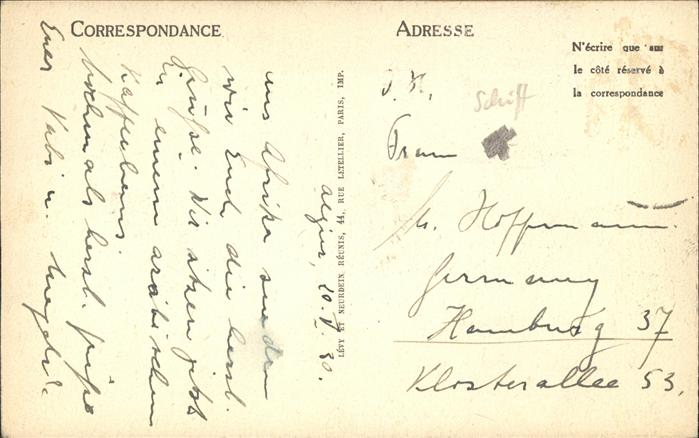 CORRESPONDANCE
ADRESSE
N'écrire que sur
le côté réservé à
la correspondance
LÉVY ET NEURDEIN RÉUNIS, 44, RUE LETELLIER, PARIS, IMP.
Algier, 20. V. 30.
Aus Afrika senden
wir Euch die herzl.
Grüße. Wir sitzen jetzt
in einem arabischen
Kaffeehaus
Nochmals herzl. Grüße
Euer
Schiff
Frau
M. Hoffmann.
Germany
Hamburg 37
Klosterallee 53.